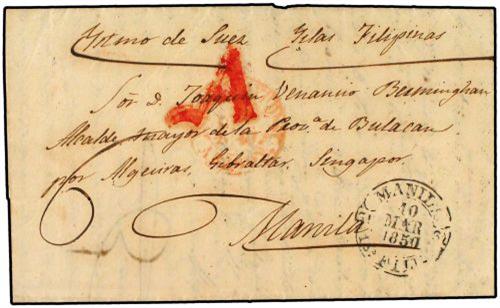 Istmo de Suez Yslas Filipinas
A
Sor. D. Joaquin Venancio Berminghan
Alcalde mayor de la Prova. de Bulacan
por Algeciras, Gibraltar, Singapor.
Manila
MANILA
10
MAR
1850